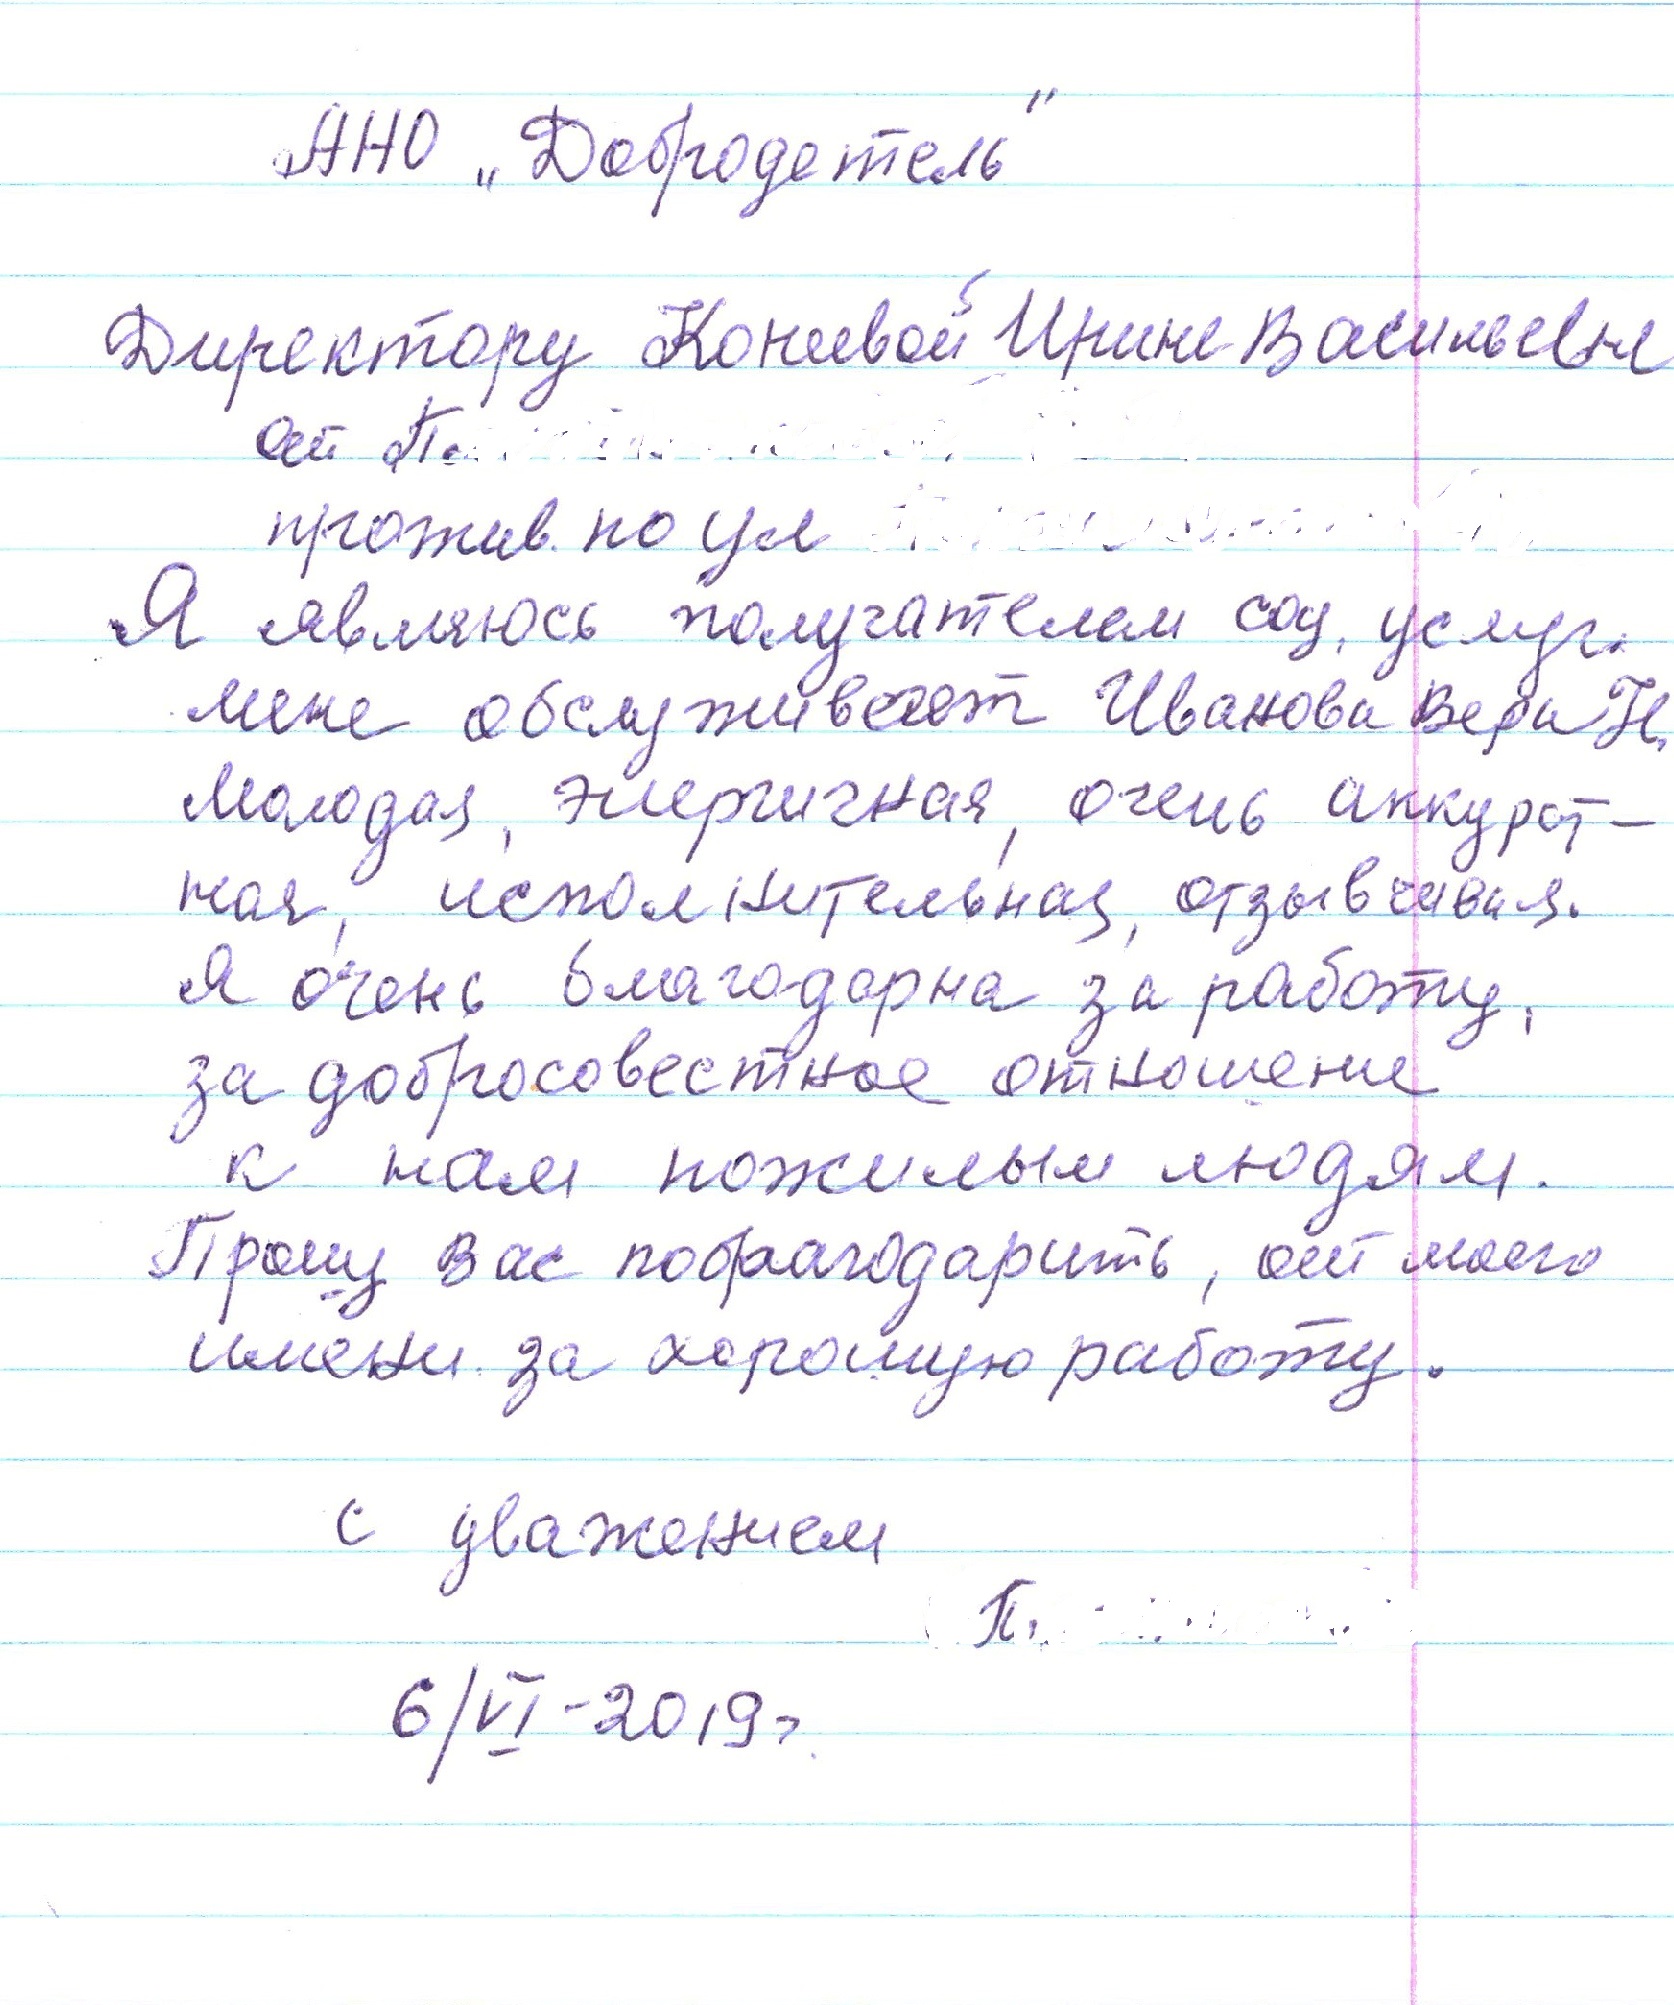 АНО „Добродетель"
Директору Коневой Ирине Васильевне
от П.
прожив. по ул
Я являюсь получателем соц. услуг.
мене обслуживает Иванова Вера Н.
Молодая, энергичная, очень аккурат-
ная, исполнительная, отзывчивая.
Я очень благодарна за работу,
за добросовестное отношение
к нам пожилым людям.
Прошу Вас поблагодарить, от моего
имени за хорошую работу.
с уважением
П.
6/VI-2019г.